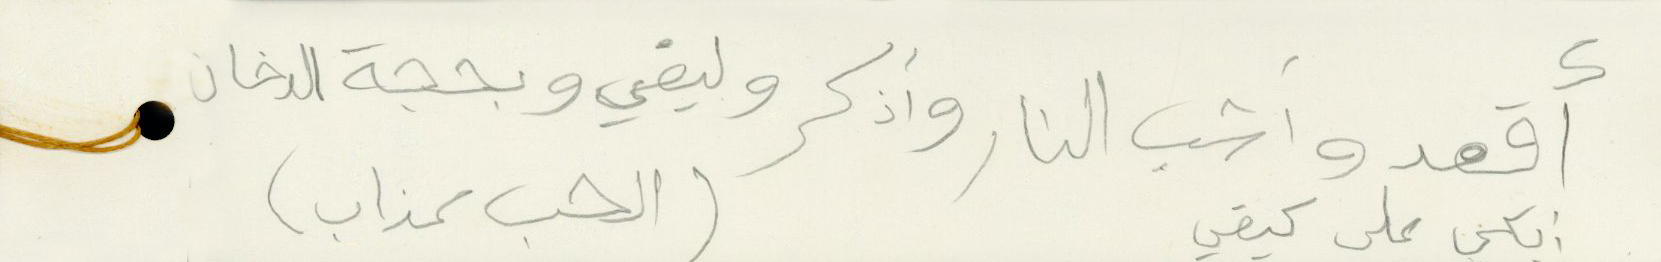 أقعد وأشب النار وأذكر وليفي وبحجة الدخان
أبكي على كيفي
(الحب عذاب)